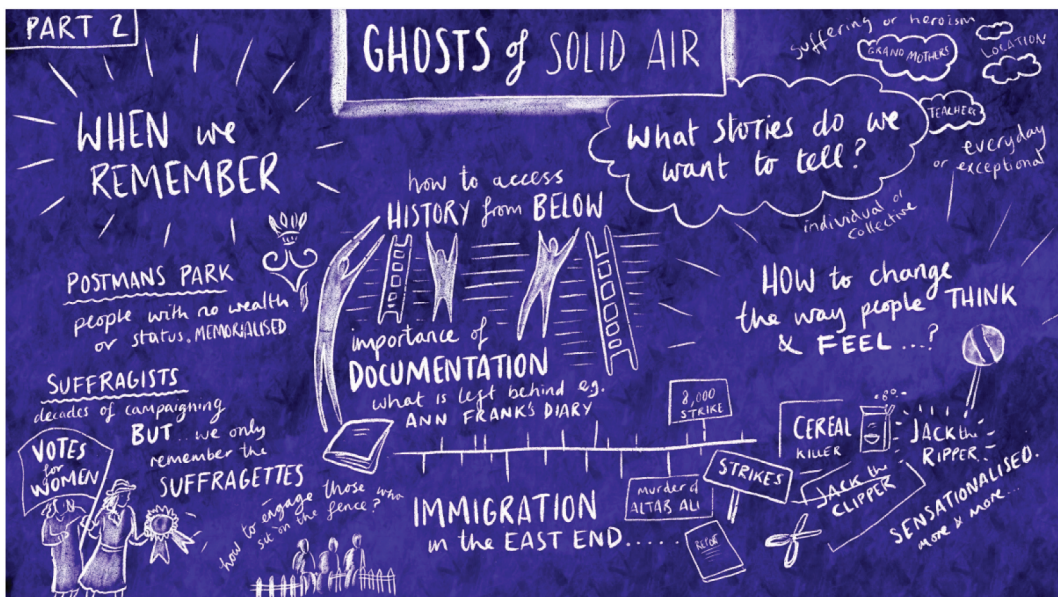 PART 2
GHOSTS of SOLID AIR
WHEN we
REMEMBER
POSTMANS PARK
people with no wealth
or status. MEMORIALISED
SUFFRAGISTS
decades of campaigning
BUT... we only
remember the
SUFFRAGETTES
VOTES
for
WOMEN
how to engage those who
sit on the fence?
how to access
HISTORY from BELOW
importance of
DOCUMENTATION
what is left behind eg.
ANN FRANK'S DIARY
8,000
STRIKE
IMMIGRATION
in the EAST END.....
murder of
ALTAB ALI
REPORT
STRIKES
suffering or heroism
GRAND MOTHERS
LOCATION!
TEACHERS
What stories do we
want to tell?
everyday
or exceptional
individual or
collective
HOW to change
the way people THINK
& FEEL...?
CEREAL
KILLER
JACK the
RIPPER
JACK the
CLIPPER
SENSATIONALISED.
more & more...